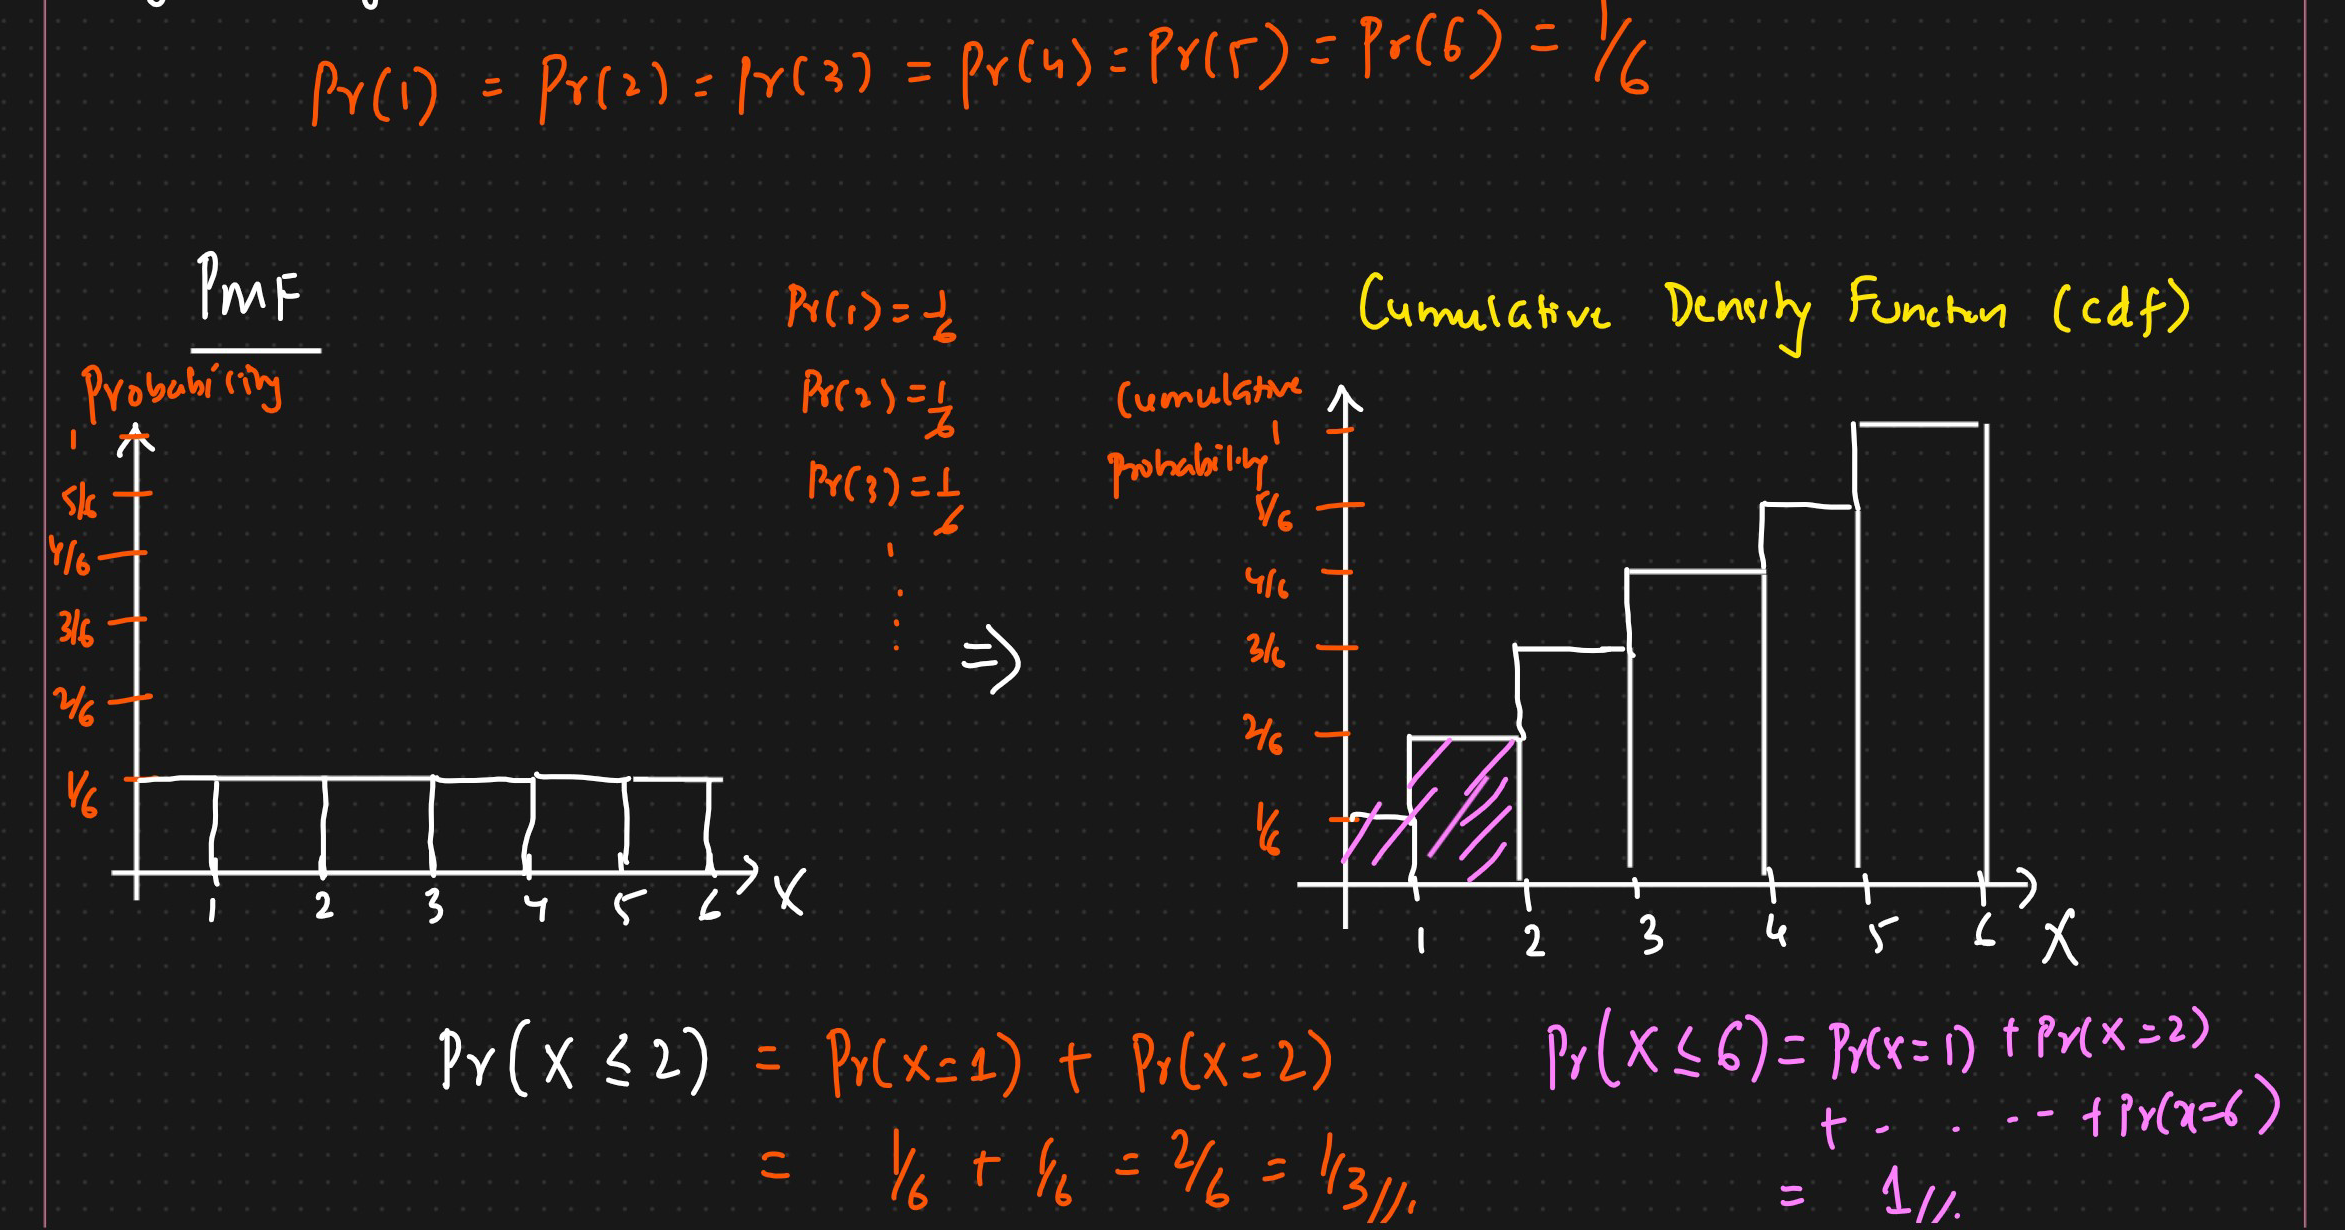 Pr(1) = Pr(2) = Pr(3) = Pr(4) = Pr(5) = Pr(6) = 1/6
PMF
Probability
1
5/6
4/6
3/6
2/6
1/6
1 2 3 4 5 6 X
Pr(1) = 1/6
Pr(2) = 1/6
Pr(3) = 1/6
⇒
Cumulative Density Function (cdf)
Cumulative
probability
1
5/6
4/6
3/6
2/6
1/6
1 2 3 4 5 6 X
Pr(X ≤ 2) = Pr(X=1) + Pr(X=2)
= 1/6 + 1/6 = 2/6 = 1/3//.
Pr(X ≤ 6) = Pr(X=1) + Pr(X=2)
+ . . .. + Pr(X=6)
= 1//.